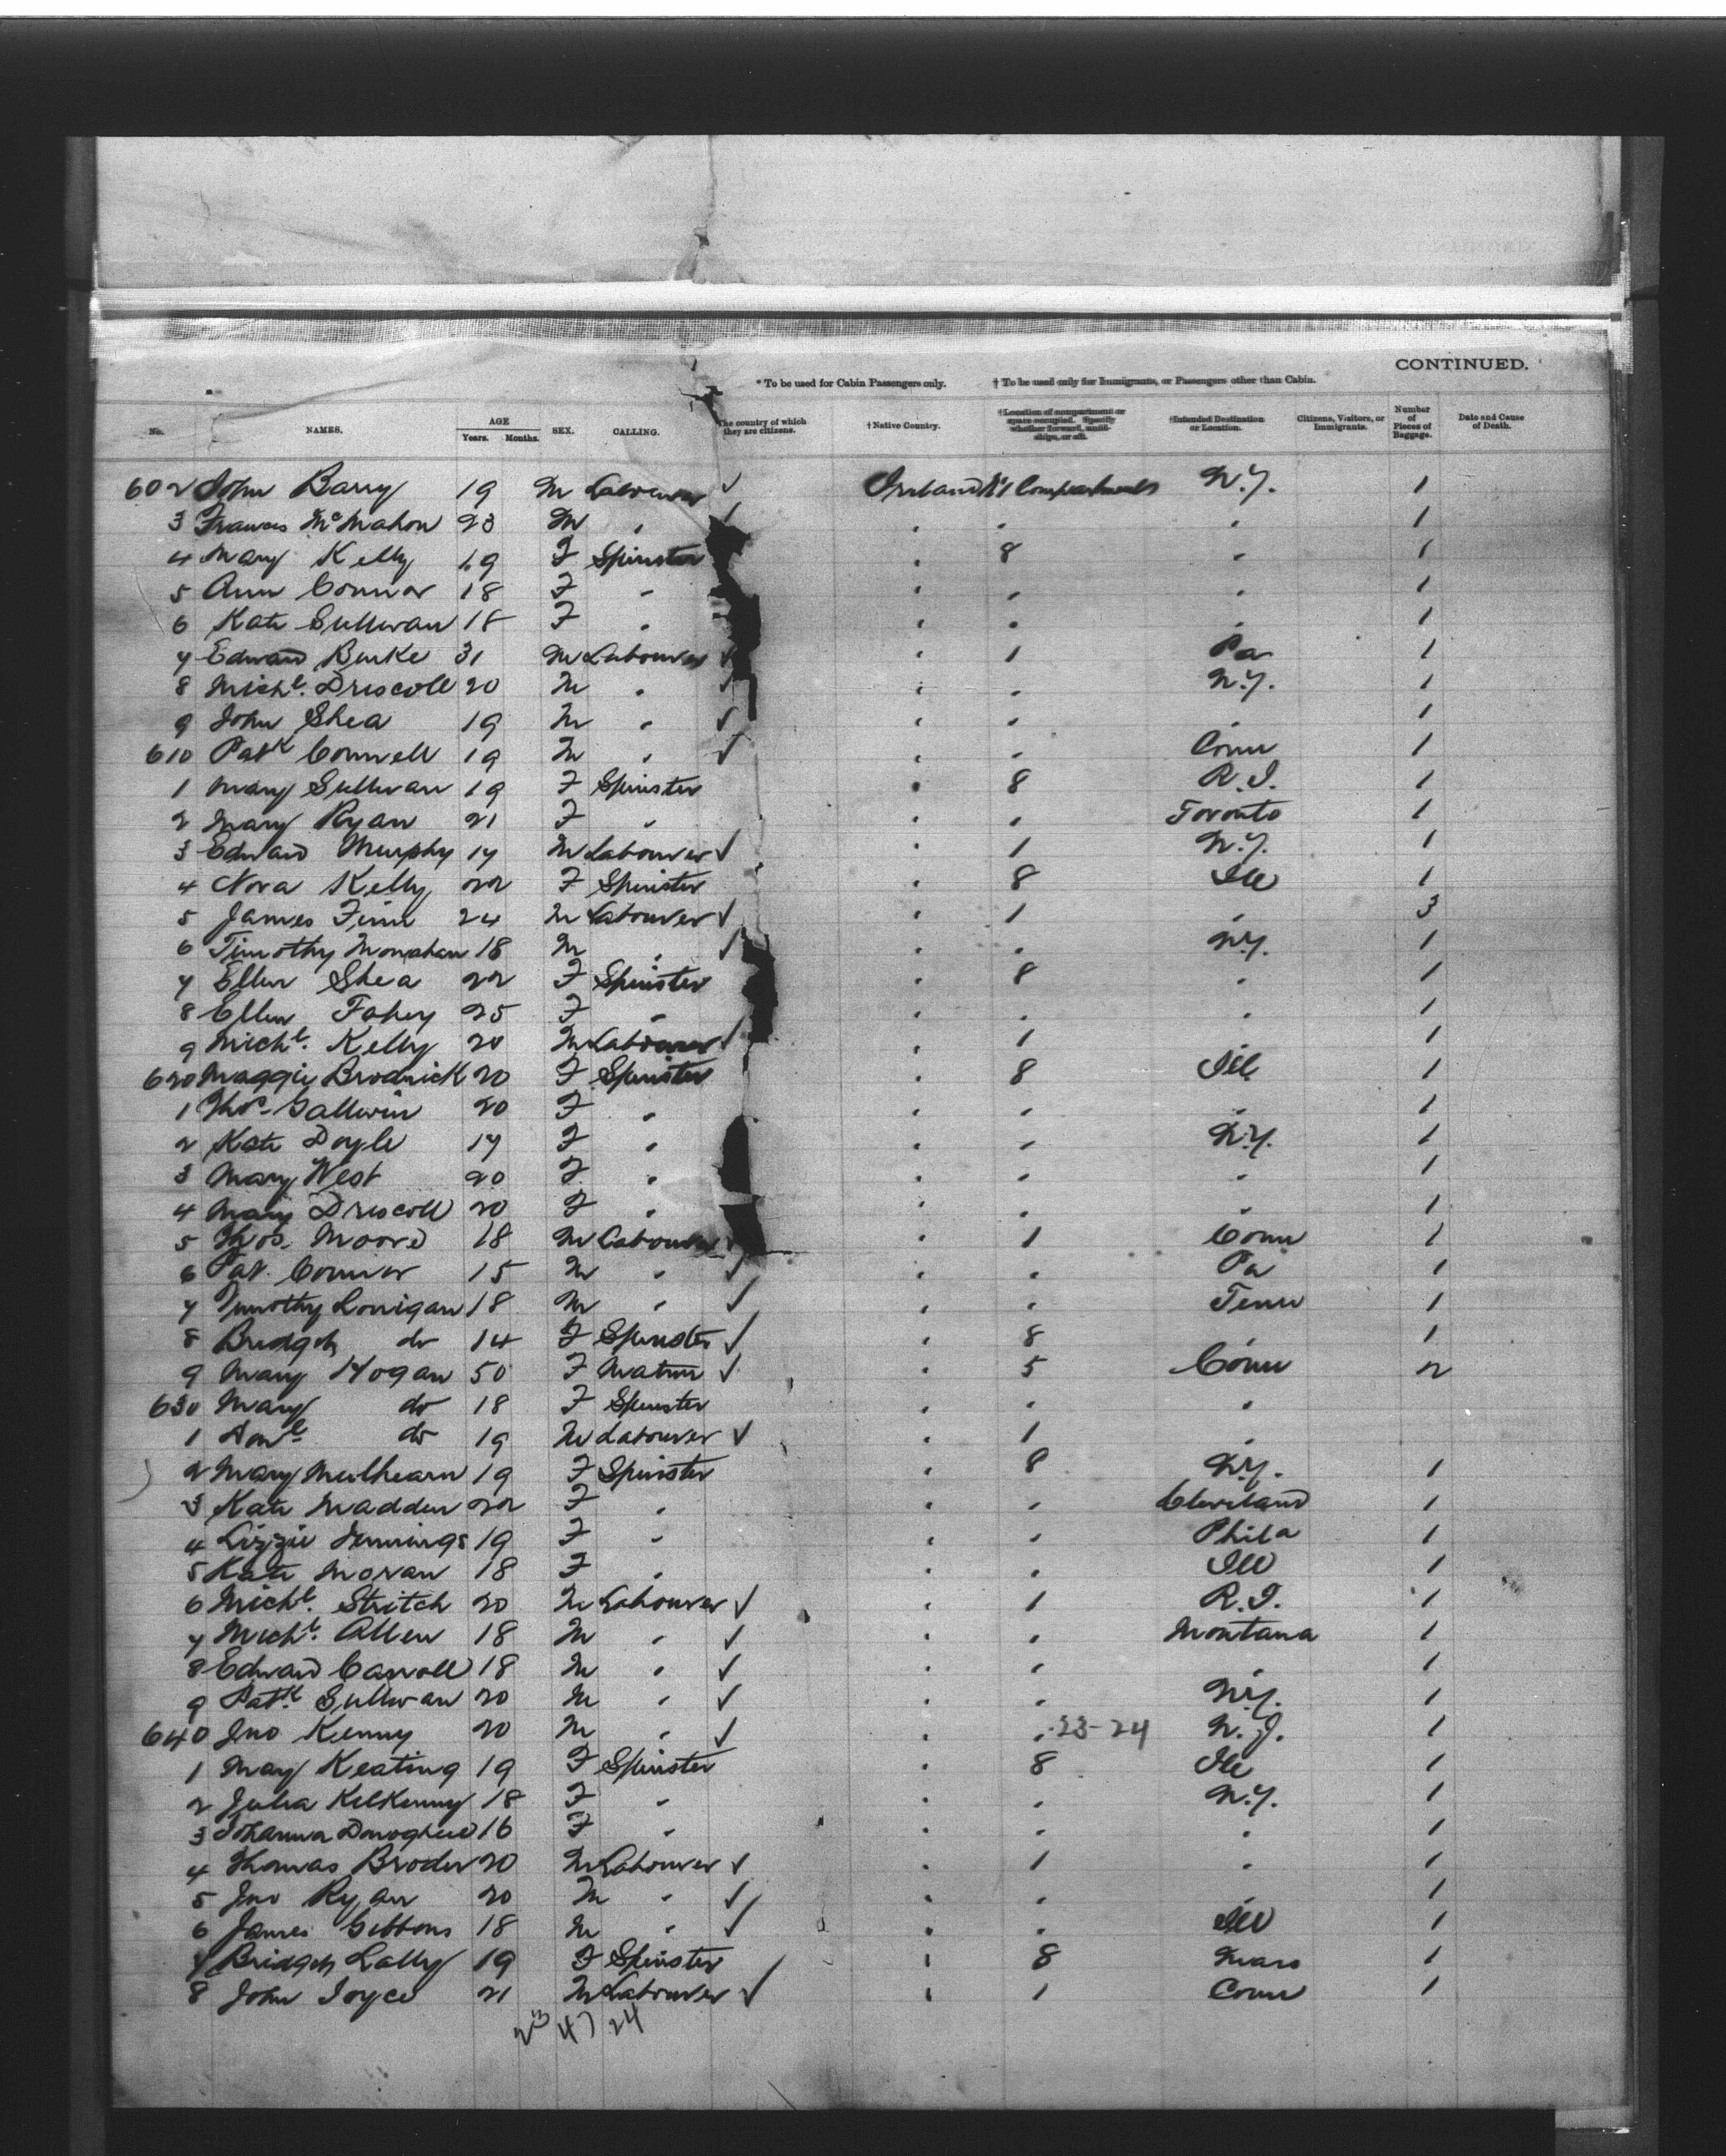 CONTINUED.
* To be used for Cabin Passengers only. † To be used only for Immigrants, or Passengers other than Cabin.
No. NAMES. AGE Years. Months. SEX. CALLING. The country of which they are citizens. † Native Country. † Location of compartment or space occupied. Specify whether forward, amidships, or aft. † Intended Destination or Location. Citizens, Visitors, or Immigrants. Number of Pieces of Baggage. Date and Cause of Death.
602 John Barry 19 M Labourer ✓ Ireland No 1 Compartment N.Y. 1
3 Frances McMahon 23 M " " " " 1
4 Mary Kelly 19 F Spinster " 8 " 1
5 Ann Connor 18 F " " " " 1
6 Kate Sullivan 18 F " " " " 1
7 Edward Burke 31 M Labourer ✓ " 1 Pa 1
8 Michl. Driscoll 20 M " ✓ " " N.Y. 1
9 John Shea 19 M " ✓ " " " 1
610 Patk Connell 19 M " ✓ " " Conn 1
1 Mary Sullivan 19 F Spinster " 8 R.I. 1
2 Mary Ryan 21 F " " " Toronto 1
3 Edward Murphy 17 M Labourer ✓ " 1 N.Y. 1
4 Nora Kelly 22 F Spinster " 8 Ill 1
5 James Finn 24 M Labourer ✓ " 1 " 3
6 Timothy Monahan 18 M " ✓ " " N.Y. 1
7 Ellen Shea 22 F Spinster " 8 " 1
8 Ellen Fahey 25 F " " " " 1
9 Michl. Kelly 20 M Labourer ✓ " 1 " 1
620 Maggie Brodrick 20 F Spinster " 8 Ill. 1
1 Thos. Gallwin 20 F " " " " 1
2 Kate Doyle 17 F " " " N.Y. 1
3 Mary West 20 F " " " " 1
4 Mary Driscoll 20 F " " " " 1
5 Thos. Moore 18 M Labourer " 1 Conn 1
6 Pat. Connor 15 M " ✓ " " Pa 1
7 Timothy Lonigan 18 M " ✓ " " Tenn 1
8 Bridget do 14 F Spinster ✓ " 8 " 1
9 Mary Hogan 50 F Matron ✓ " 5 Conn 2
630 Mary do 18 F Spinster " " "
1 do 19 M Labourer ✓ " 1 "
2 Mary Mulhearn 19 F Spinster " 8 N.Y. 1
3 Kate Madden 22 F " " " Cleveland 1
4 Lizzie Jennings 19 F " " " Phila 1
5 Kate Moran 18 F " " " Ill 1
6 Michl. Stritch 20 M Labourer ✓ " 1 R.I. 1
7 Michl. Allen 18 M " ✓ " " Montana 1
8 Edward Carroll 18 M " ✓ " " " 1
9 Patk. Sullivan 20 M " ✓ " " N.Y. 1
640 Jno Kenny 20 M " ✓ " " 23-24 N.J. 1
1 May Keating 19 F Spinster " 8 Ill 1
2 Julia Kilkenny 18 F " " " N.Y. 1
3 Johanna Donoghue 16 F " " " " 1
4 Thomas Broder 20 M Labourer ✓ " 1 " 1
5 Jno Ryan 20 M " ✓ " " " 1
6 James Gibbons 18 M " ✓ " " Ill 1
7 Bridget Lally 19 F Spinster " 8 Mass 1
8 John Joyce 21 M Labourer ✓ " 1 Conn 1
23 47 24